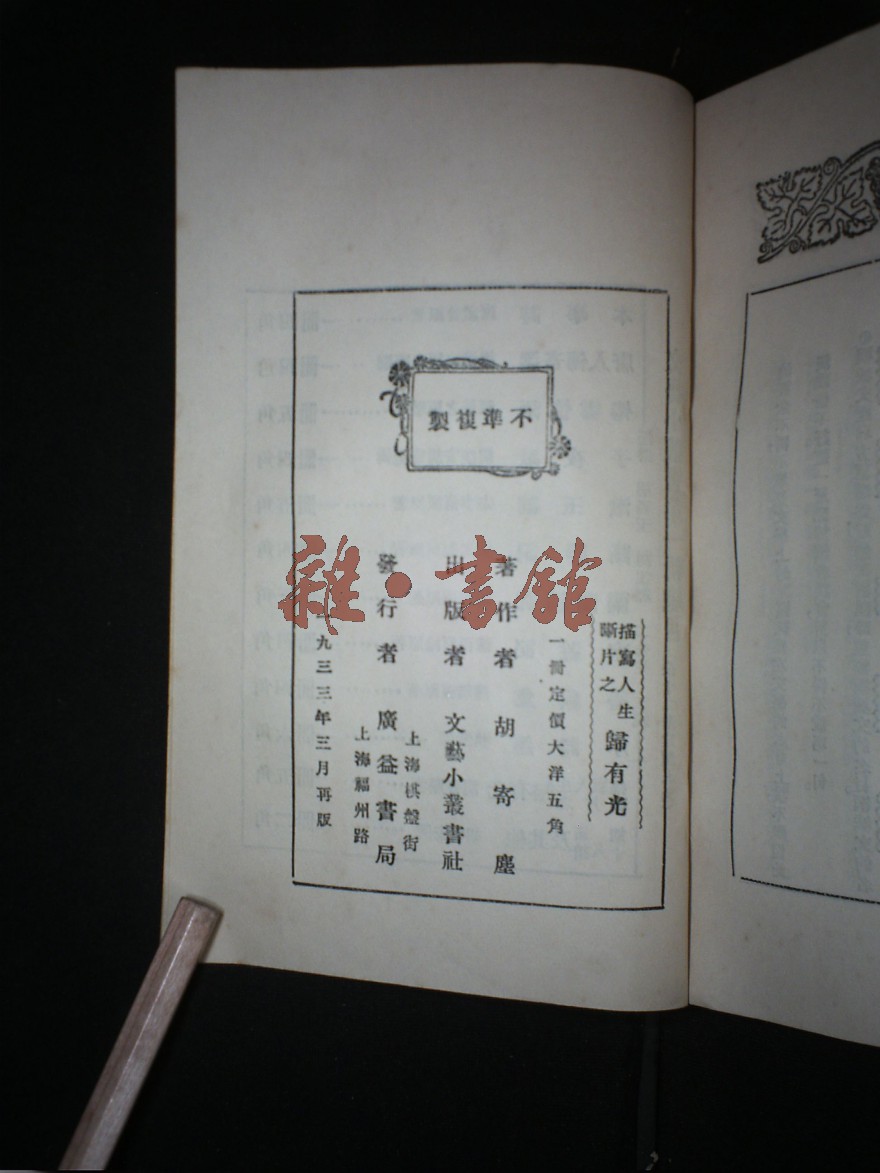 不準複製
描寫人生
斷片之
歸有光
一冊定價大洋五角
著作者 胡寄塵
出版者 文藝小叢書社
上海棋盤街
發行者 廣益書局
上海福州路
九三三年三月再版
雜·書館